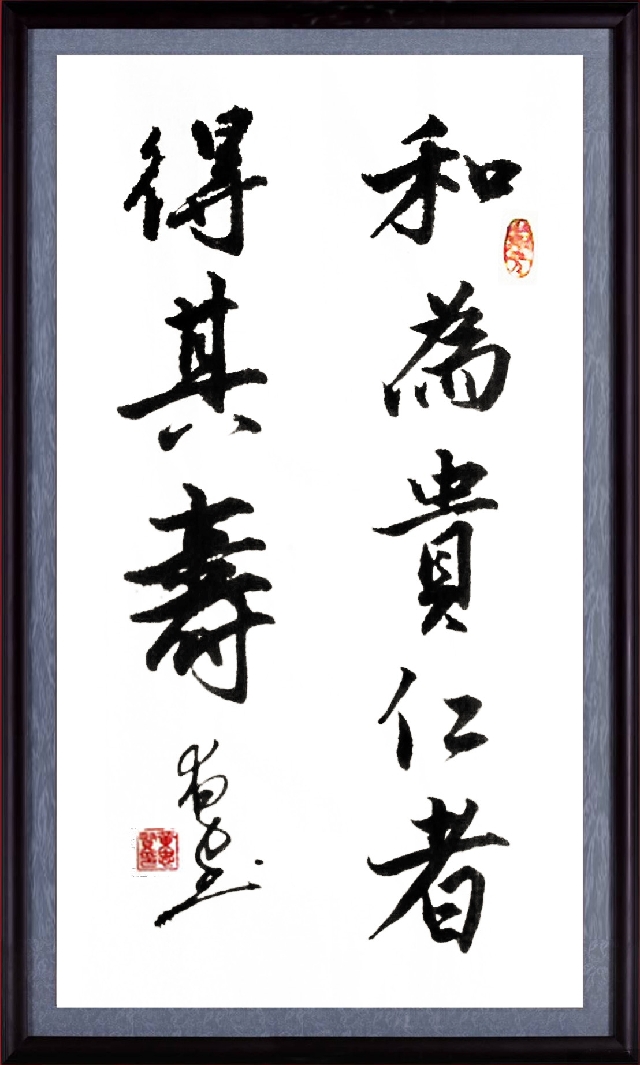 和為貴仁者
得其壽